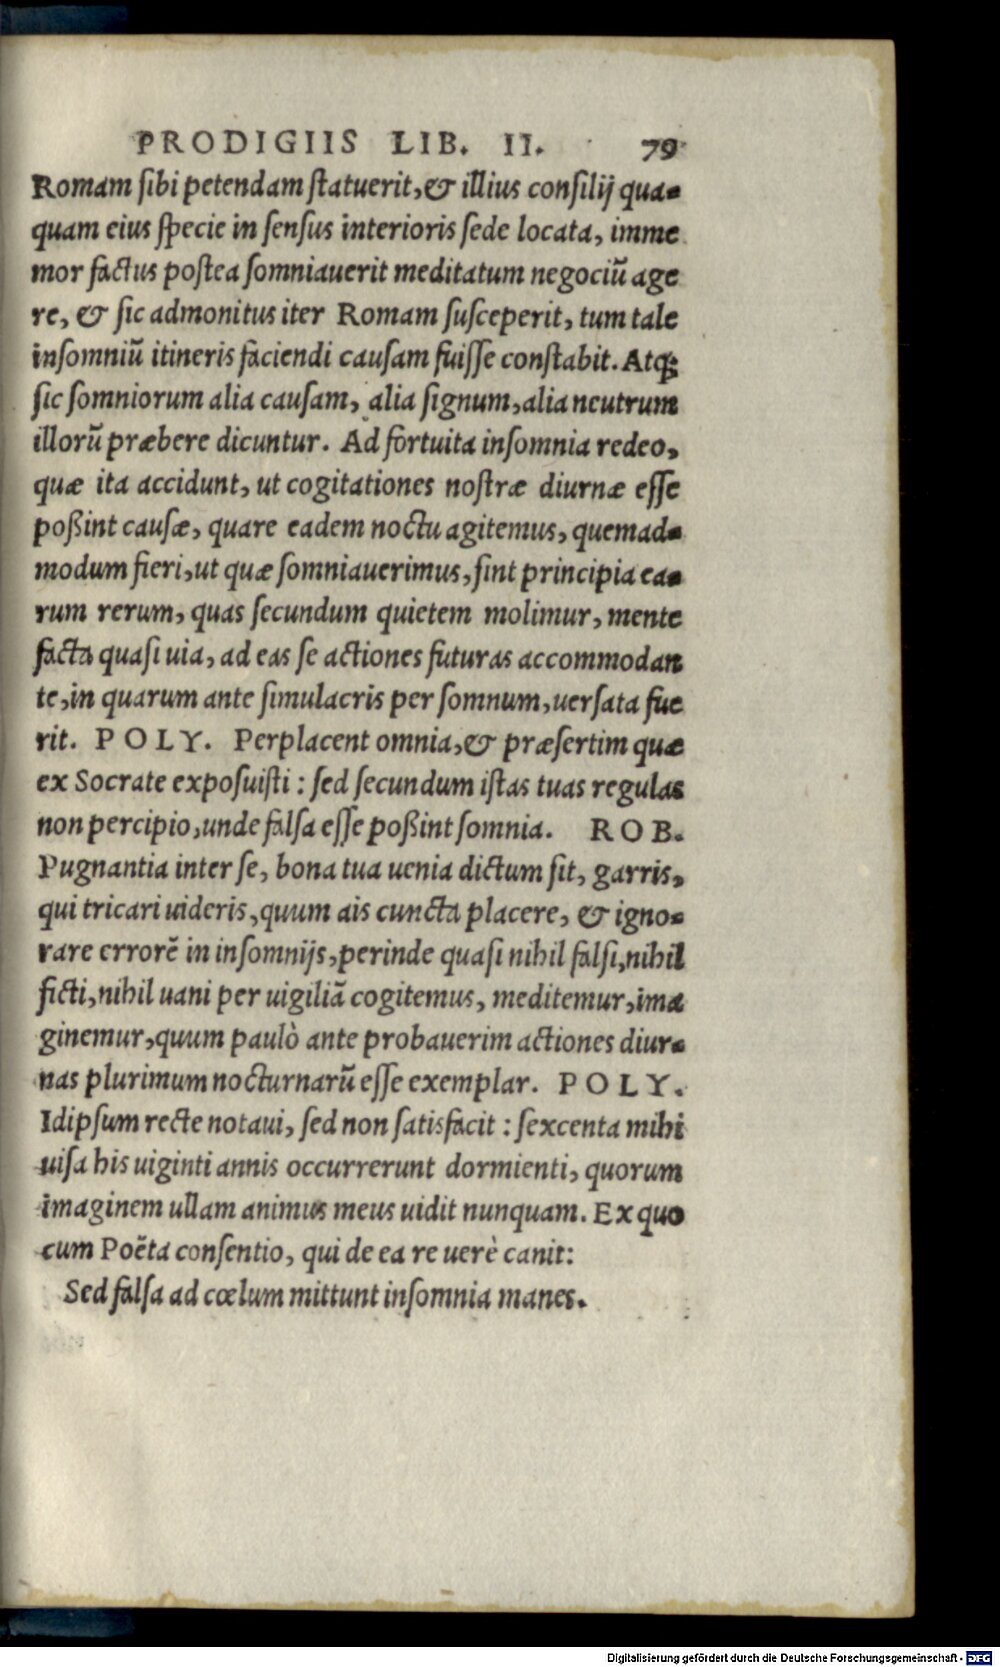 PRODIGIIS LIB. II. 79
Romam sibi petendam statuerit, & illius consilij qua-
quam eius specie in sensus interioris sede locata, imme
mor factus postea somniauerit meditatum negociũ age
re, & sic admonitus iter Romam susceperit, tum tale
insomniũ itineris faciendi causam fuisse constabit. Atq;
sic somniorum alia causam, alia signum, alia neutrum
illorũ præbere dicuntur. Ad fortuita insomnia redeo,
quæ ita accidunt, ut cogitationes nostræ diurnæ esse
poßint causæ, quare eadem noctu agitemus, quemad-
modum fieri, ut quæ somniauerimus, sint principia ea-
rum rerum, quas secundum quietem molimur, mente
facta quasi uia, ad eas se actiones futuras accommodan
te, in quarum ante simulacris per somnum, uersata fue
rit. POLY. Perplacent omnia, & præsertim quæ
ex Socrate exposuisti: sed secundum istas tuas regulas
non percipio, unde falsa esse poßint somnia. ROB.
Pugnantia inter se, bona tua uenia dictum sit, garris,
qui tricari uideris, quum ais cuncta placere, & igno-
rare errorẽ in insomnijs, perinde quasi nihil falsi, nihil
ficti, nihil uani per uigiliã cogitemus, meditemur, ima
ginemur, quum paulò ante probauerim actiones diur-
nas plurimum nocturnarũ esse exemplar. POLY.
Idipsum recte notaui, sed non satisfacit: sexcenta mihi
uisa his uiginti annis occurrerunt dormienti, quorum
imaginem ullam animus meus uidit nunquam. Ex quo
cum Poëta consentio, qui de ea re uerè canit:
Sed falsa ad cœlum mittunt insomnia manes.
Digitalisierung gefördert durch die Deutsche Forschungsgemeinschaft - DFG